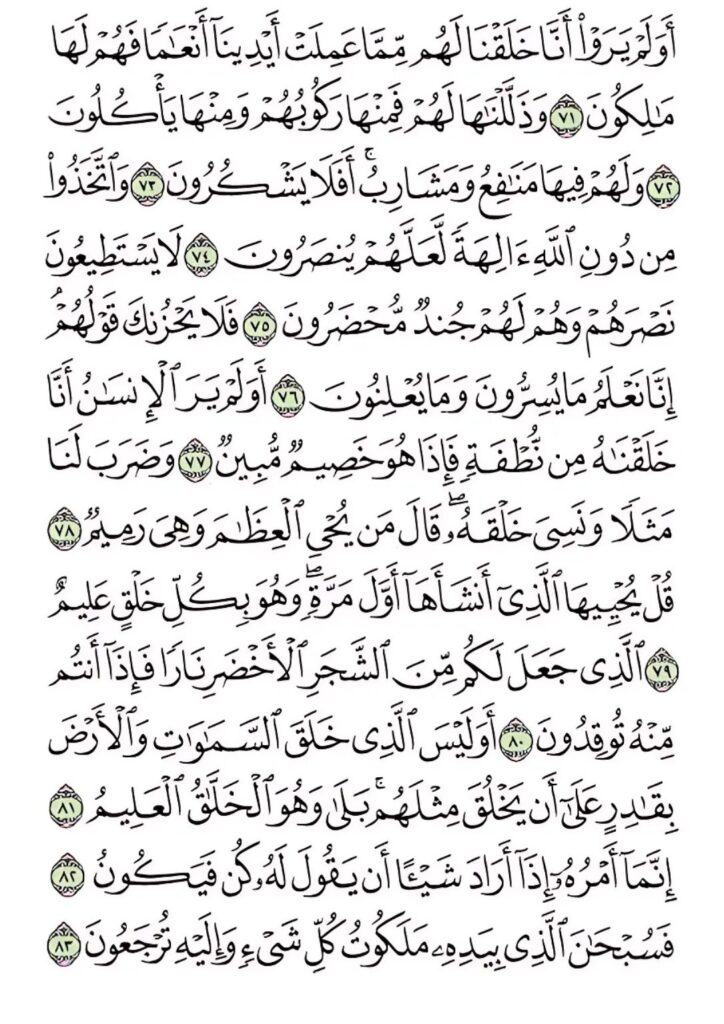 أَوَلَمْ يَرَوْا۟ أَنَّا خَلَقْنَا لَهُم مِّمَّا عَمِلَتْ أَيْدِينَآ أَنْعَـٰمًا فَهُمْ لَهَا
مَـٰلِكُونَ ٧١ وَذَلَّلْنَـٰهَا لَهُمْ فَمِنْهَا رَكُوبُهُمْ وَمِنْهَا يَأْكُلُونَ
٧٢ وَلَهُمْ فِيهَا مَنَـٰفِعُ وَمَشَارِبُ ۚ أَفَلَا يَشْكُرُونَ ٧٣ وَٱتَّخَذُوا۟
مِن دُونِ ٱللَّهِ ءَالِهَةً لَّعَلَّهُمْ يُنصَرُونَ ٧٤ لَا يَسْتَطِيعُونَ
نَصْرَهُمْ وَهُمْ لَهُمْ جُندٌ مُّحْضَرُونَ ٧٥ فَلَا يَحْزُنكَ قَوْلُهُمْ ۘ
إِنَّا نَعْلَمُ مَا يُسِرُّونَ وَمَا يُعْلِنُونَ ٧٦ أَوَلَمْ يَرَ ٱلْإِنسَـٰنُ أَنَّا
خَلَقْنَـٰهُ مِن نُّطْفَةٍ فَإِذَا هُوَ خَصِيمٌ مُّبِينٌ ٧٧ وَضَرَبَ لَنَا
مَثَلًا وَنَسِىَ خَلْقَهُۥ ۖ قَالَ مَن يُحْىِ ٱلْعِظَـٰمَ وَهِىَ رَمِيمٌ ٧٨
قُلْ يُحْيِيهَا ٱلَّذِىٓ أَنشَأَهَآ أَوَّلَ مَرَّةٍ ۖ وَهُوَ بِكُلِّ خَلْقٍ عَلِيمٌ
٧٩ ٱلَّذِى جَعَلَ لَكُم مِّنَ ٱلشَّجَرِ ٱلْأَخْضَرِ نَارًا فَإِذَآ أَنتُم
مِّنْهُ تُوقِدُونَ ٨٠ أَوَلَيْسَ ٱلَّذِى خَلَقَ ٱلسَّمَـٰوَٰتِ وَٱلْأَرْضَ
بِقَـٰدِرٍ عَلَىٰٓ أَن يَخْلُقَ مِثْلَهُم ۚ بَلَىٰ وَهُوَ ٱلْخَلَّـٰقُ ٱلْعَلِيمُ ٨١
إِنَّمَآ أَمْرُهُۥٓ إِذَآ أَرَادَ شَيْـًٔا أَن يَقُولَ لَهُۥ كُن فَيَكُونُ ٨٢
فَسُبْحَـٰنَ ٱلَّذِى بِيَدِهِۦ مَلَكُوتُ كُلِّ شَىْءٍ وَإِلَيْهِ تُرْجَعُونَ ٨٣